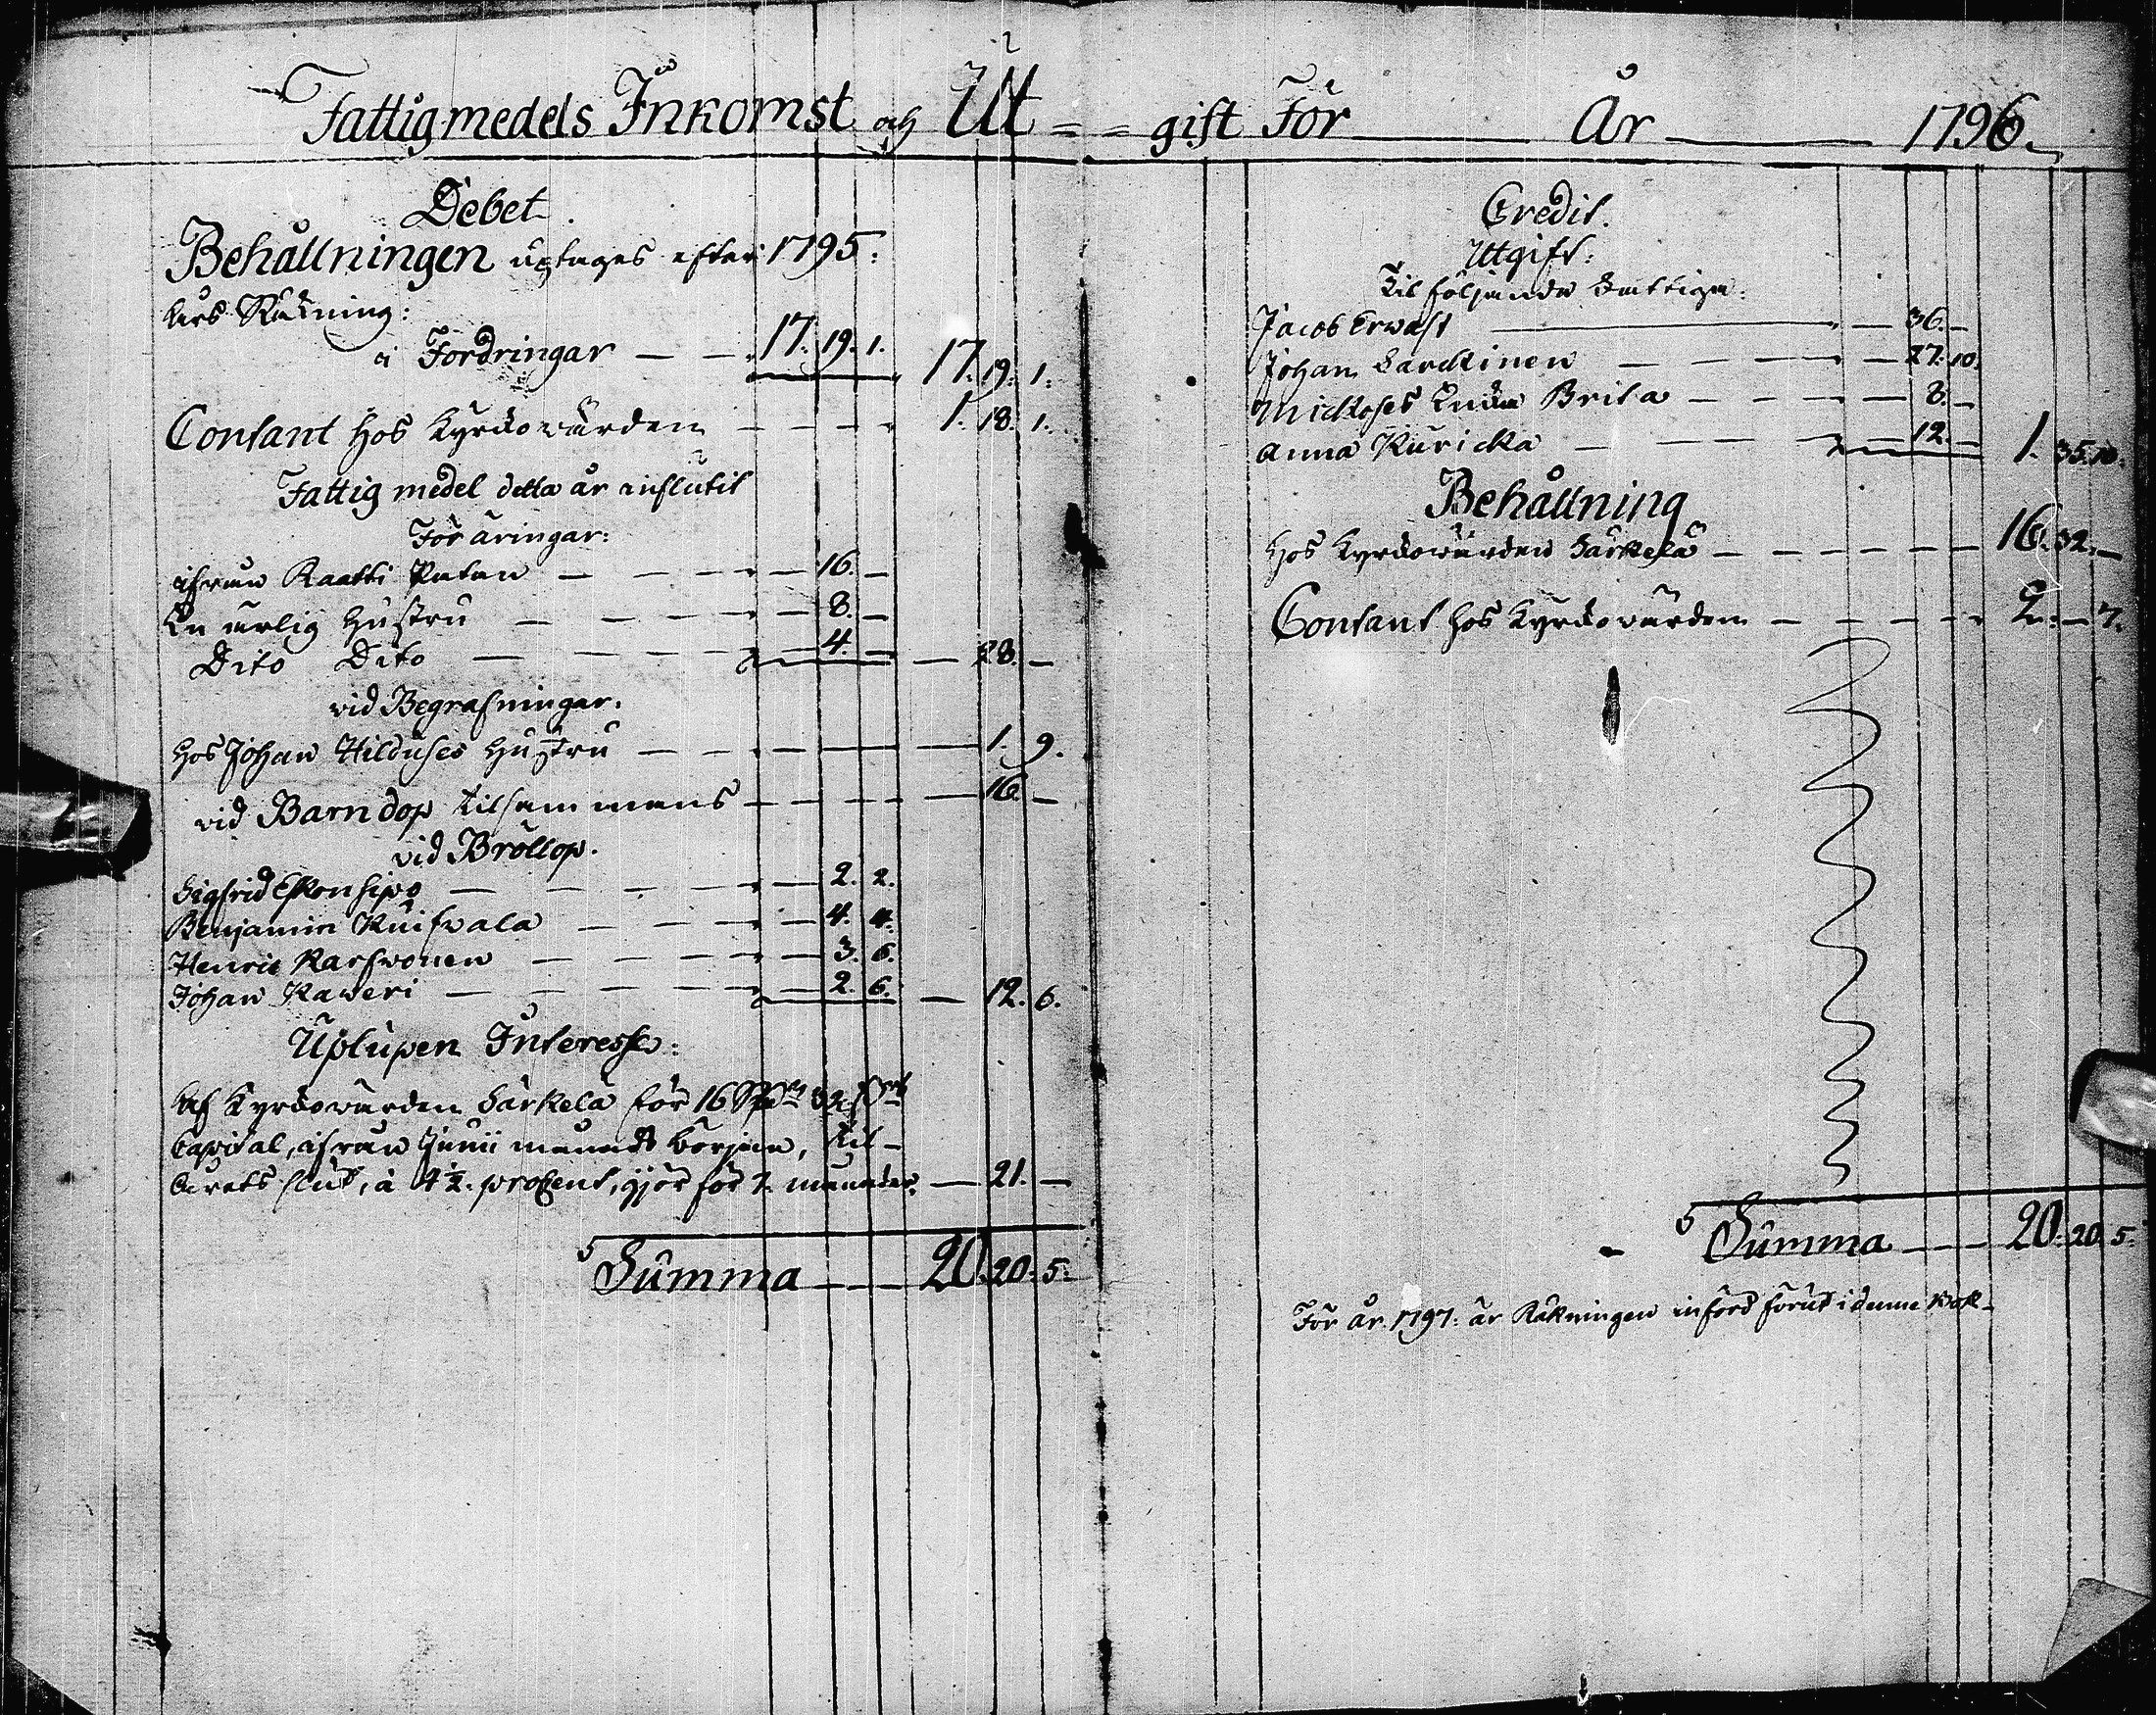 Fattigmedels Inkomst och Ut = = gift För År 1796.
Debet.
Behållningen uptages efter 1795:
års Räkning:
i Fordringar — — 17. 19. 1. 17. 19. 1.
Contant hos Kyrckovärden — — — — 1. 18. 1.
Fattig medel detta år influtit
För äringar:
ifrån Raatti Patan — — — — 16. —
En ärlig Hustru — — — — 8. —
Dito Dito — — — — 4. — — 28. —
vid Begrafningar.
hos Johan Hilduses Hustru — — — — — 1. 9.
vid Barndop tilsammans — — — — — 16. —
vid Bröllop.
Sigfrid Eskonsipo — — — — 2. 2.
Benjamin Kuifvala — — — — 4. 4.
Henric Karfvonen — — — — 3. 6.
Johan Kaweri — — — — 2. 6. — 12. 6.
Uplupen Interesse:
Af Kyrckovärden Särkelä för 16 Rd 32 s
Capital, ifrån Junii månads början, til
årets slut, à 4½ procent, gjör för 7 månader. — 21. —
Summa — — 20. 20. 5.
Credit.
Utgift:
Til följande Fattiga:
Jacob Erwast — — 36. —
Johan Sarckinen — — — — 27. 10.
Mickoses Enka Brita — — — — 8. —
Anna Kuricka — — — — 12. — 1. 35. 10.
Behållning
hos Kyrckovärden Särkelä — — — — — 16. 32. —
Contant hos Kyrckovärden — — — — — 2. — 7.
Summa — — 20. 20. 5.
För år 1797. är Räkningen införd förut i denne Bok